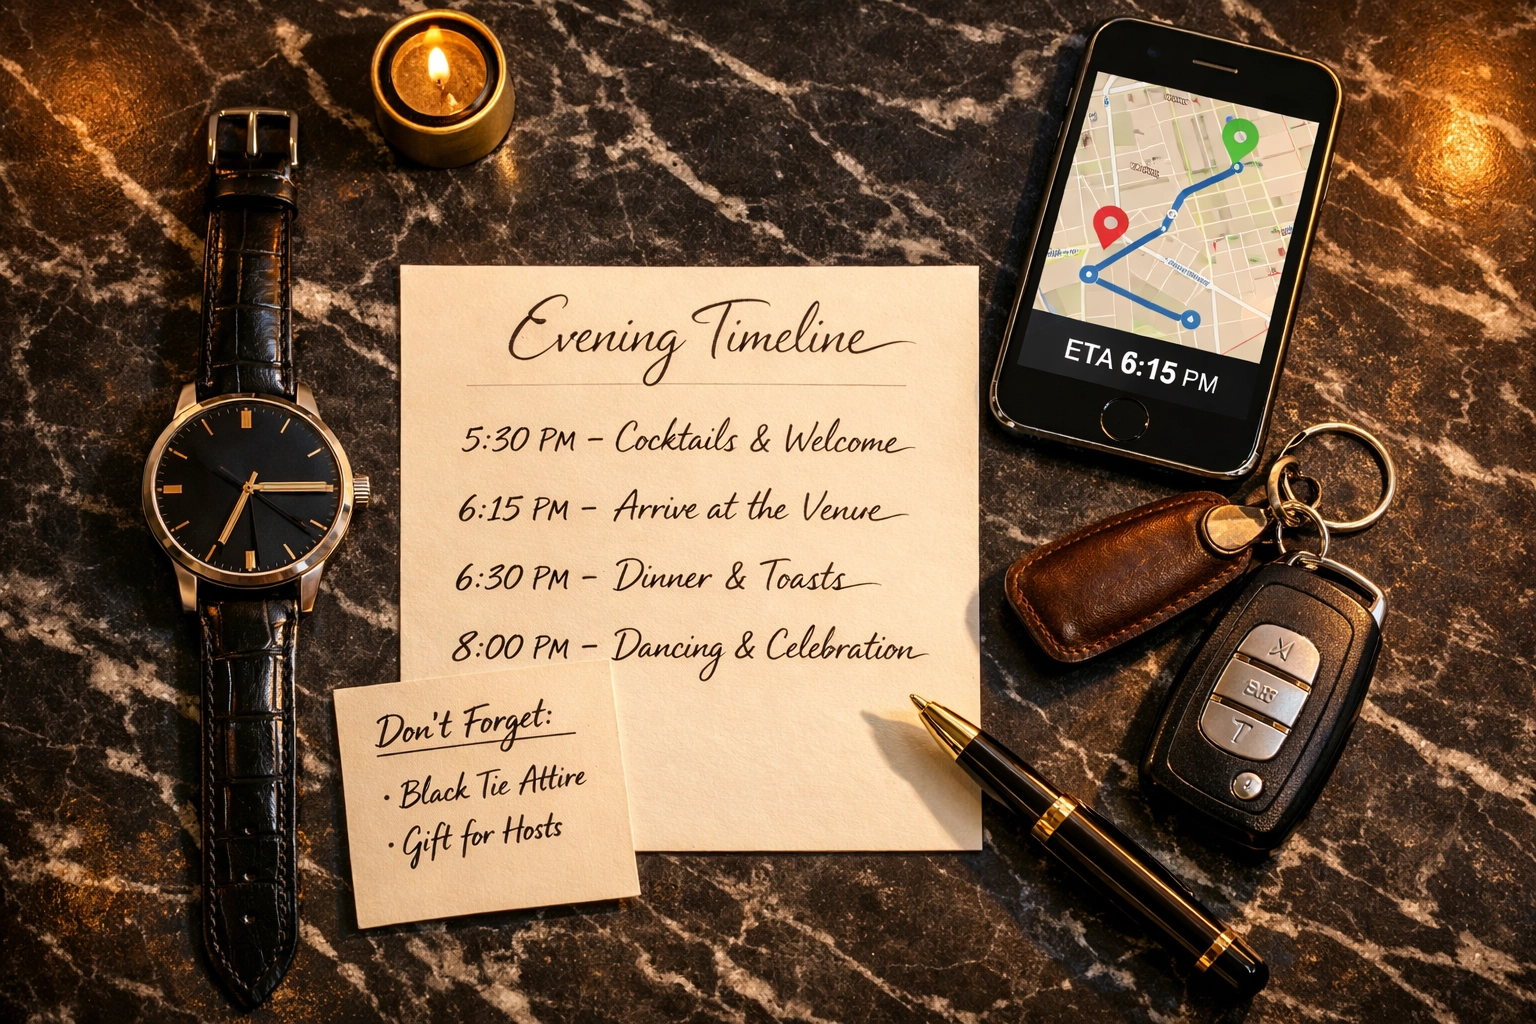 Evening Timeline
5:30 PM – Cocktails & Welcome
6:15 PM – Arrive at the Venue
6:30 PM – Dinner & Toasts
8:00 PM – Dancing & Celebration
Don't Forget:
· Black Tie Attire
· Gift for Hosts
ETA 6:15 PM